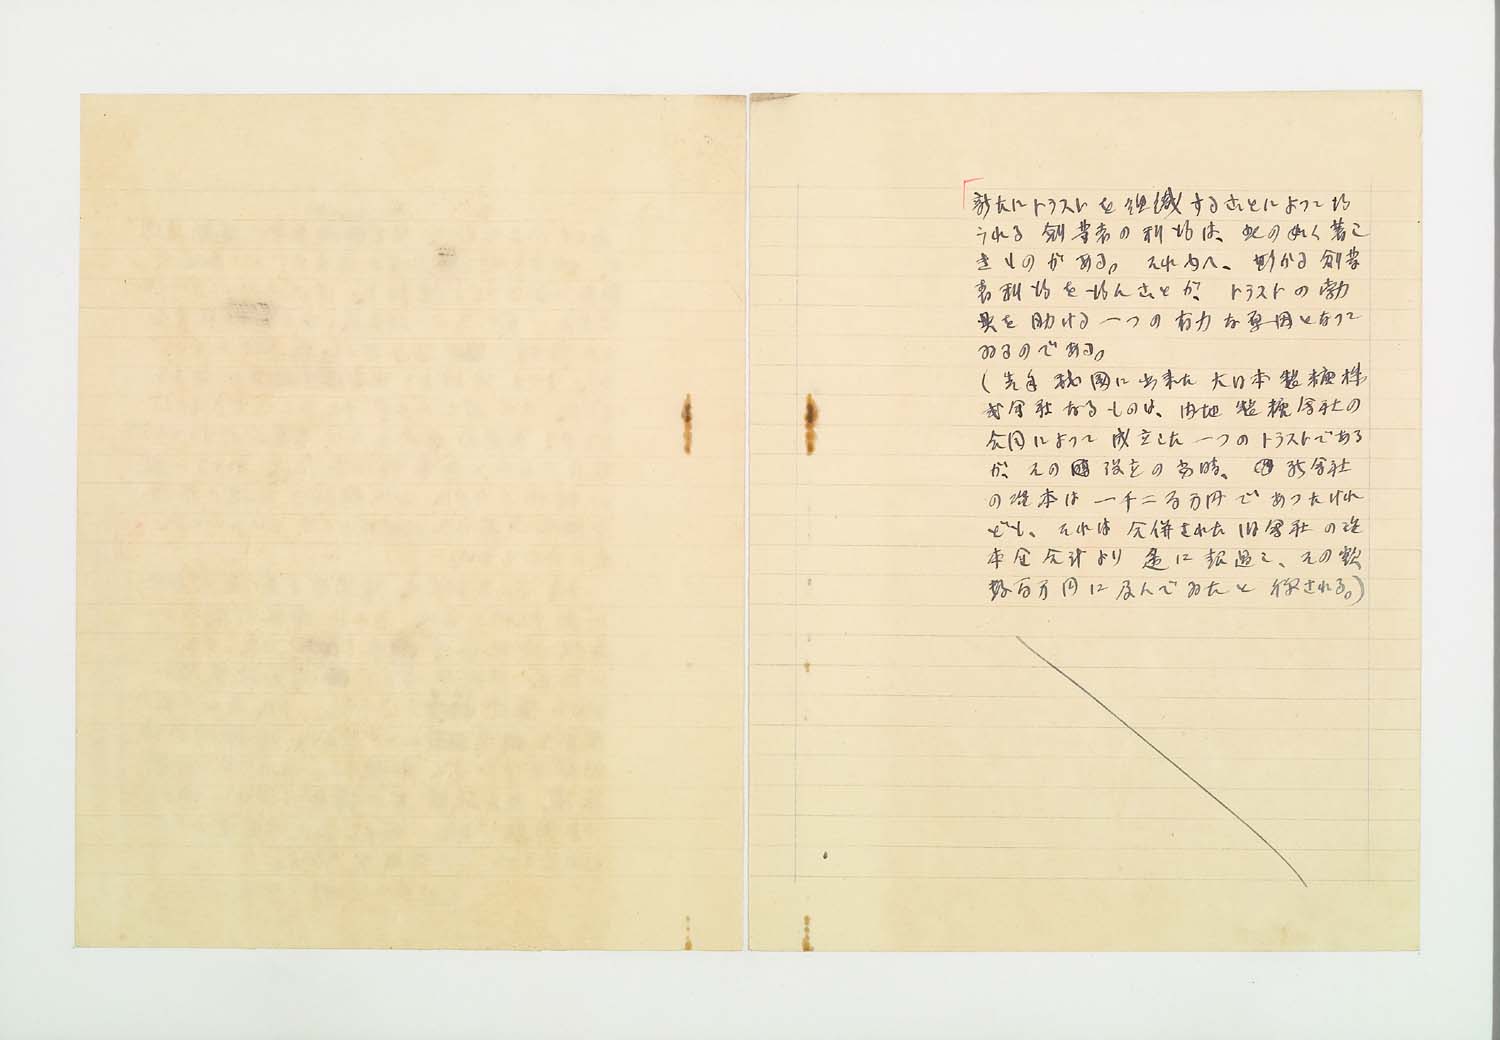 新たにトラストを組織することによつて得
られる創業者の利得は、此の如く著し
きものがある。それ故へ、斯かる創業
者利得を得んことが、トラストの勃
興を助ける一つの有力な原因となつて
ゐるのである。
(先年我國に出来た大日本製糖株
式会社なるものは、内地製糖会社の
合同によつて成立した一つのトラストである
が、その設立の当時、新会社
の資本は一千二百万円であつたけれ
ども、それは合併された旧会社の資
本金合計より遙に超過し、その額
数百万円に及んでゐたと称される。)